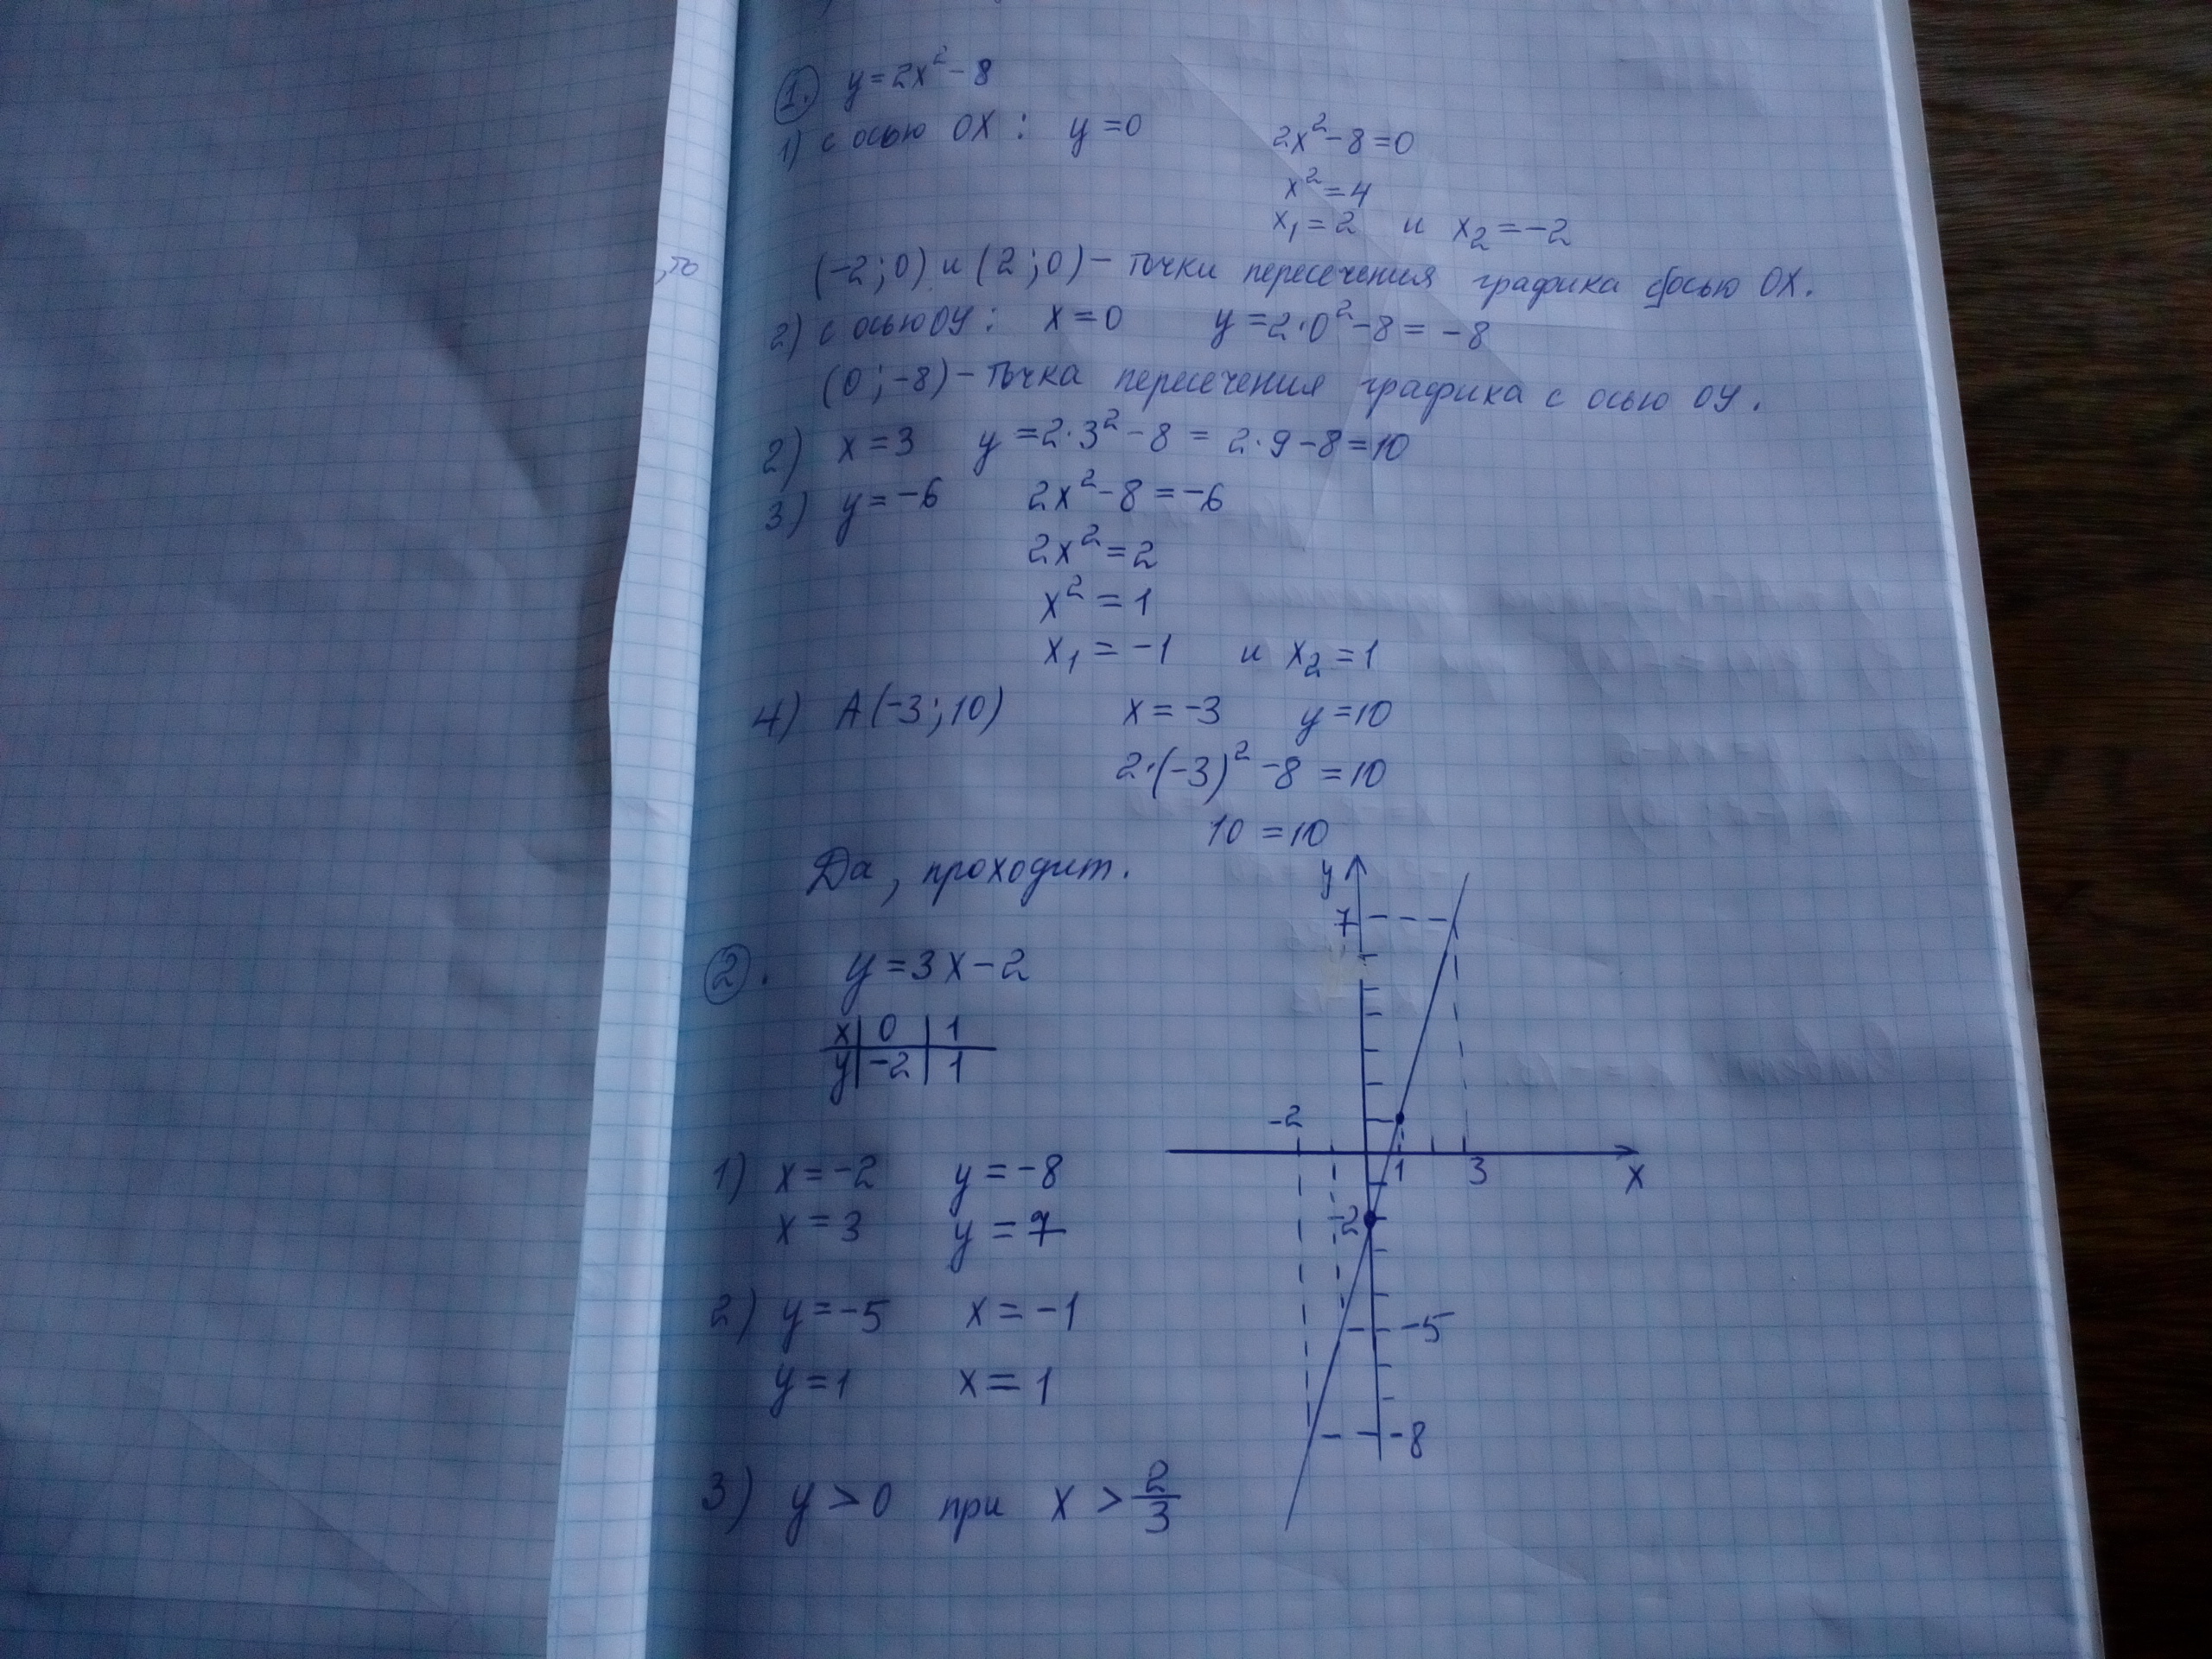 ,то
1. y=2x²-8
1) с осью OX: y=0 2x²-8=0
x²=4
x₁=2 и x₂=-2
(-2;0) и (2;0) - точки пересечения графика с осью OX.
2) с осью OY: x=0 y=2·0²-8=-8
(0;-8) - точка пересечения графика с осью OY.
2) x=3 y=2·3²-8=2·9-8=10
3) y=-6 2x²-8=-6
2x²=2
x²=1
x₁=-1 и x₂=1
4) A(-3;10) x=-3 y=10
2·(-3)²-8=10
10=10
Да, проходит.
2. y=3x-2
x | 0 | 1
y | -2 | 1
1) x=-2 y=-8
x=3 y=7
2) y=-5 x=-1
y=1 x=1
3) y>0 при x>2/3
y
7
-2
1 3 x
-2
-5
-8